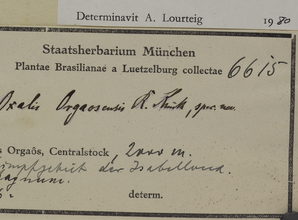 Determinavit A. Lourteig 1980
Staatsherbarium München
Plantae Brasilianae a Luetzelburg collectae 6615
Oxalis Orgaosensis R. Knuth, spec. nov.
s Orgaôs, Centralstock, 2000 m.
der Isabellond.
determ.